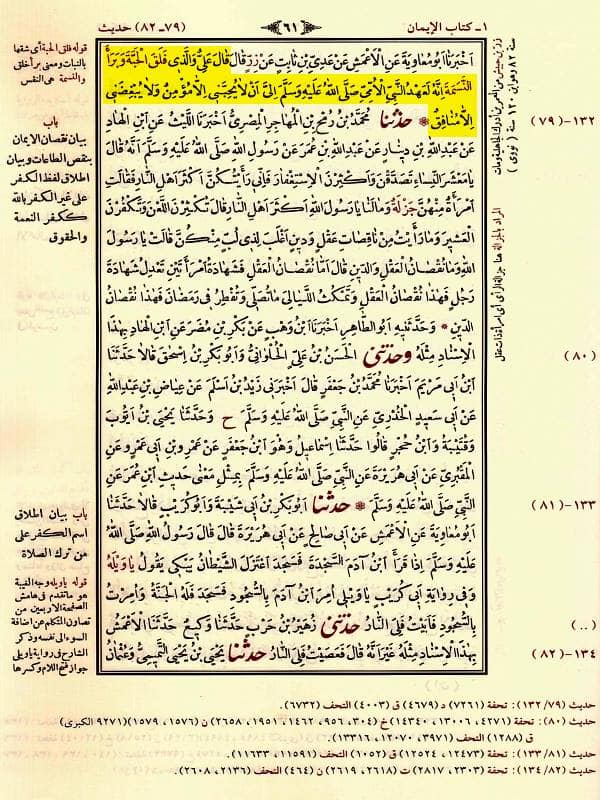 ١ - كتاب الإيمان
٦١
(٧٩ - ٨٢) حديث
اَخْبَرَنَا اَبُو مُعَاوِيَةَ عَنِ الْاَعْمَشِ عَنْ عَدِيِّ بْنِ ثَابِتٍ عَنْ زِرٍّ قَالَ قَالَ عَلِيٌّ وَالَّذِي فَلَقَ الْحَبَّةَ وَبَرَأَ
النَّسَمَةَ اِنَّهُ لَعَهْدُ النَّبِيِّ الْاُمِّيِّ صَلَّى اللهُ عَلَيْهِ وَسَلَّمَ اِلَيَّ اَنْ لَا يُحِبَّنِي اِلَّا مُؤْمِنٌ وَلَا يُبْغِضَنِي
اِلَّا مُنَافِقٌ * حَدَّثَنَا مُحَمَّدُ بْنُ رُمْحِ بْنِ الْمُهَاجِرِ الْمِصْرِيُّ اَخْبَرَنَا اللَّيْثُ عَنِ ابْنِ الْهَادِ
عَنْ عَبْدِ اللهِ بْنِ دِينَارٍ عَنْ عَبْدِ اللهِ بْنِ عُمَرَ عَنْ رَسُولِ اللهِ صَلَّى اللهُ عَلَيْهِ وَسَلَّمَ اَنَّهُ قَالَ
يَا مَعْشَرَ النِّسَاءِ تَصَدَّقْنَ وَاَكْثِرْنَ الْاِسْتِغْفَارَ فَاِنِّي رَاَيْتُكُنَّ اَكْثَرَ اَهْلِ النَّارِ فَقَالَتِ
امْرَأَةٌ مِنْهُنَّ جَزْلَةٌ وَمَا لَنَا يَا رَسُولَ اللهِ اَكْثَرَ اَهْلِ النَّارِ قَالَ تُكْثِرْنَ اللَّعْنَ وَتَكْفُرْنَ
الْعَشِيرَ وَمَا رَأَيْتُ مِنْ نَاقِصَاتِ عَقْلٍ وَدِينٍ اَغْلَبَ لِذِي لُبٍّ مِنْكُنَّ قَالَتْ يَا رَسُولَ
اللهِ وَمَا نُقْصَانُ الْعَقْلِ وَالدِّينِ قَالَ اَمَّا نُقْصَانُ الْعَقْلِ فَشَهَادَةُ امْرَأَتَيْنِ تَعْدِلُ شَهَادَةَ
رَجُلٍ فَهٰذَا نُقْصَانُ الْعَقْلِ وَتَمْكُثُ اللَّيَالِيَ مَا تُصَلِّي وَتُفْطِرُ فِي رَمَضَانَ فَهٰذَا نُقْصَانُ
الدِّينِ * وَحَدَّثَنِيهِ اَبُو الطَّاهِرِ اَخْبَرَنَا ابْنُ وَهْبٍ عَنْ بَكْرِ بْنِ مُضَرَ عَنِ ابْنِ الْهَادِ بِهٰذَا
الْاِسْنَادِ مِثْلَهُ وَحَدَّثَنِي الْحَسَنُ بْنُ عَلِيٍّ الْحُلْوَانِيُّ وَاَبُو بَكْرِ بْنُ اِسْحٰقَ قَالَا حَدَّثَنَا
ابْنُ اَبِي مَرْيَمَ اَخْبَرَنَا مُحَمَّدُ بْنُ جَعْفَرٍ قَالَ اَخْبَرَنِي زَيْدُ بْنُ اَسْلَمَ عَنْ عِيَاضِ بْنِ عَبْدِ اللهِ
عَنْ اَبِي سَعِيدٍ الْخُدْرِيِّ عَنِ النَّبِيِّ صَلَّى اللهُ عَلَيْهِ وَسَلَّمَ ح وَحَدَّثَنَا يَحْيَى بْنُ اَيُّوبَ
وَقُتَيْبَةُ وَابْنُ حُجْرٍ قَالُوا حَدَّثَنَا اِسْمَاعِيلُ وَهُوَ ابْنُ جَعْفَرٍ عَنْ عَمْرِو بْنِ اَبِي عَمْرٍو عَنِ
الْمَقْبُرِيِّ عَنْ اَبِي هُرَيْرَةَ عَنِ النَّبِيِّ صَلَّى اللهُ عَلَيْهِ وَسَلَّمَ بِمِثْلِ مَعْنَى حَدِيثِ ابْنِ عُمَرَ عَنِ
النَّبِيِّ صَلَّى اللهُ عَلَيْهِ وَسَلَّمَ * حَدَّثَنَا اَبُو بَكْرِ بْنُ اَبِي شَيْبَةَ وَاَبُو كُرَيْبٍ قَالَا حَدَّثَنَا
اَبُو مُعَاوِيَةَ عَنِ الْاَعْمَشِ عَنْ اَبِي صَالِحٍ عَنْ اَبِي هُرَيْرَةَ قَالَ قَالَ رَسُولُ اللهِ صَلَّى اللهُ
عَلَيْهِ وَسَلَّمَ اِذَا قَرَأَ ابْنُ آدَمَ السَّجْدَةَ فَسَجَدَ اعْتَزَلَ الشَّيْطَانُ يَبْكِي يَقُولُ يَا وَيْلَهُ
وَفِي رِوَايَةِ اَبِي كُرَيْبٍ يَا وَيْلِي اُمِرَ ابْنُ آدَمَ بِالسُّجُودِ فَسَجَدَ فَلَهُ الْجَنَّةُ وَاُمِرْتُ
بِالسُّجُودِ فَاَبَيْتُ فَلِيَ النَّارُ حَدَّثَنِي زُهَيْرُ بْنُ حَرْبٍ حَدَّثَنَا وَكِيعٌ حَدَّثَنَا الْاَعْمَشُ
بِهٰذَا الْاِسْنَادِ مِثْلَهُ غَيْرَ اَنَّهُ قَالَ فَعَصَيْتُ فَلِيَ النَّارُ حَدَّثَنَا يَحْيَى بْنُ يَحْيَى التَّمِيمِيُّ وَعُثْمَانُ
١٣٢-(٧٩)
(٨٠)
١٣٣-(٨١)
(..)
١٣٤-(٨٢)
المراد بالجزلة هنا جزالة الرأى اى امرأة ذات عقل
قوله فلق الحبة أى شقها
بالنبات ومعنى برأ خلق
والنسمة هى النفس
باب
بيان نقصان الايمان
بنقص الطاعات وبيان
اطلاق لفظ الكفر
على غير الكفر بالله
ككفر النعمة
والحقوق
باب بيان اطلاق
اسم الكفر على
من ترك الصلاة
قوله يا ويله وجه الغيبة
هو ما تقدم فى هامش
الصفحة الاربعين من
تصاون المتكلم عن اضافة
السوء الى نفسه وذكر
الشارح فى رواية يا ويلى
جواز فتح اللام وكسرها
حديث (١٣٢/٧٩): تحفة (٧٢٦١) د (٤٦٧٩) ق (٤٠٠٣) التحف (٦٧٣٢).
حديث (٨٠): تحفة (٤٢٧١ ، ١٣٠٠٦ ، ١٤٣٤٠) خ (٣٠٤، ٩٥٦، ١٤٦٢، ١٩٥١، ٢٦٥٨) ن (١٥٧٦، ١٥٧٩)(٩٢٧١ الكبرى)
ق (١٢٨٨) التحف (٣٩٧١، ١٢٠٧٠، ١٣٣١٦).
حديث (١٣٣/٨١): تحفة (١٢٤٧٣، ١٢٥٢٤) ق (١٠٥٢) التحف (١١٥٩١، ١١٦٣٣).
حديث (١٣٤/٨٢): تحفة (٢٣٠٣، ٢٨١٧) ت (٢٦١٨، ٢٦١٩) ن (٤٦٤) التحف (٢١٣٦، ٢٦٠٨).